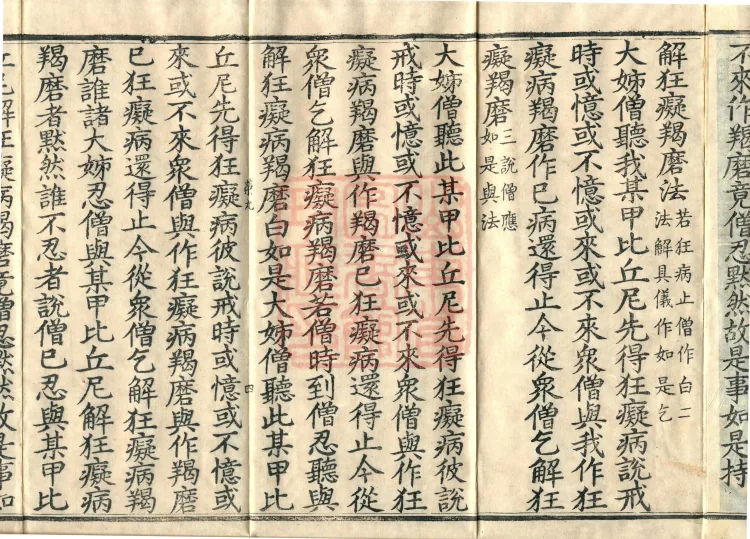 不來作羯磨竟僧忍默然故是事如是持
解狂癡羯磨法
若狂病止僧作白二
法解具儀作如是乞
大姊僧聽我某甲比丘尼先得狂癡病說戒
時或憶或不憶或來或不來眾僧與我作狂
癡病羯磨作已病還得止今從眾僧乞解狂
癡羯磨
三說僧應
如是與法
大姊僧聽此某甲比丘尼先得狂癡病彼說
戒時或憶或不憶或來或不來眾僧與作狂
癡病羯磨與作羯磨已狂癡病還得止今從
眾僧乞解狂癡病羯磨若僧時到僧忍聽與
解狂癡病羯磨白如是大姊僧聽此某甲比
第九
四
丘尼先得狂癡病彼說戒時或憶或不憶或
來或不來眾僧與作狂癡病羯磨與作羯磨
已狂癡病還得止今從眾僧乞解狂癡病羯
磨誰諸大姊忍僧與某甲比丘尼解狂癡病
羯磨者默然誰不忍者說僧已忍與某甲比
丘尼解狂癡病羯磨竟僧忍默然故是事如